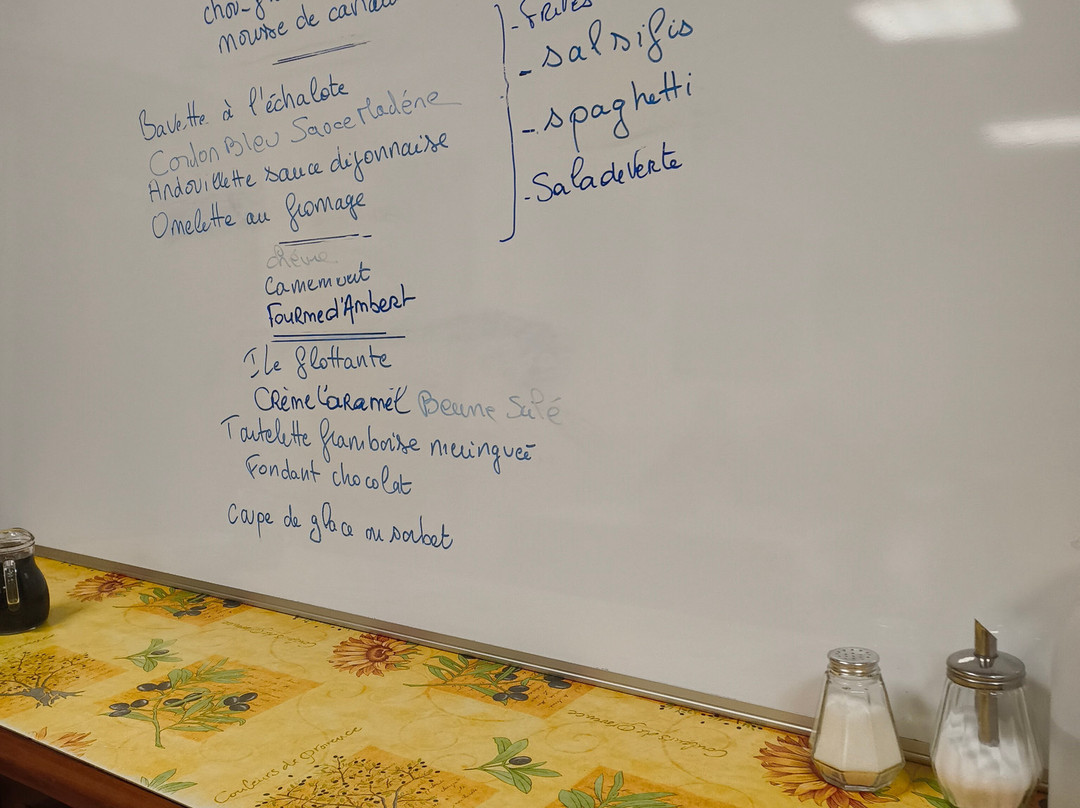 mousse de canard
Bavette à l'échalote
Cordon Bleu Sauce Madéne
Andouillette sauce dijonnaise
Omelette au fromage
- frites
- salsifis
- spaghetti
- Salade verte
chèvre
Camembert
Fourme d'Ambert
Ile flottante
Crème Caramel Beurre Salé
Tartelette framboise meringuée
Fondant chocolat
Coupe de glace ou sorbet
Couleurs de Provence
Couleurs de Provence